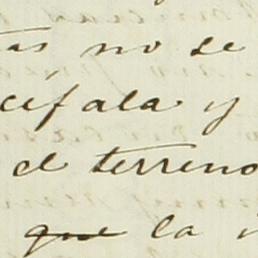 tas no se
céfala y
el terreno
que la